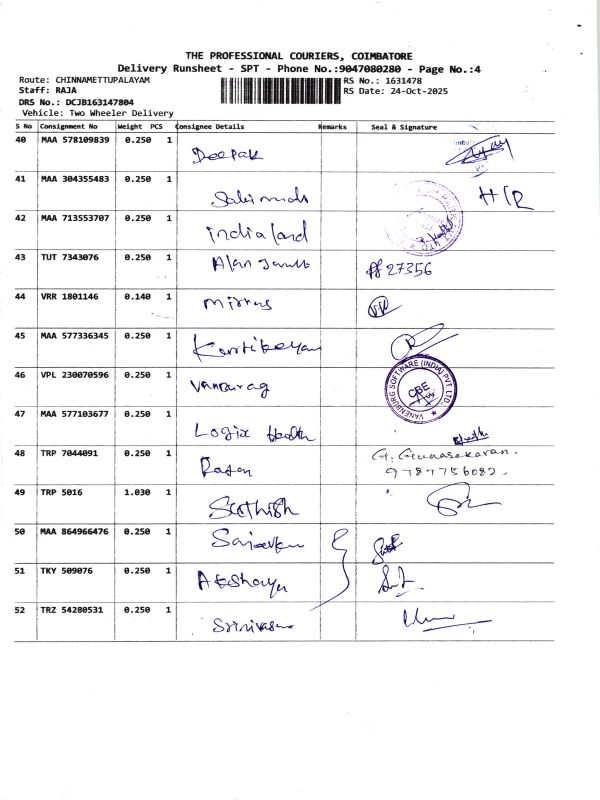 THE PROFESSIONAL COURIERS, COIMBATORE
Delivery Runsheet - SPT - Phone No.:9047080280 - Page No.:4
Route: CHINNAMETTUPALAYAM RS No.: 1631478
Staff: RAJA RS Date: 24-Oct-2025
DRS No.: DCJB163147804
Vehicle: Two Wheeler Delivery
S No Consignment No Weight PCS Consignee Details Remarks Seal & Signature
40 MAA 578109839 0.250 1 Deepak
41 MAA 304355483 0.250 1 H/R
42 MAA 713553707 0.250 1 indialand
43 TUT 7343076 0.250 1 Alan 27356
44 VRR 1801146 0.140 1
45 MAA 577336345 0.250 1 Kartikeyan
46 VPL 230070596 0.250 1 VANENBURG SOFTWARE (INDIA) PVT. LTD. CBE
47 MAA 577103677 0.250 1 Logix Health
48 TRP 7044091 0.250 1 Rajan G. Gunasekaran.
9787756082.
49 TRP 5016 1.030 1 Sathish
50 MAA 864966476 0.250 1
51 TKY 509076 0.250 1 Akshaya
52 TRZ 54280531 0.250 1 Srinivasan